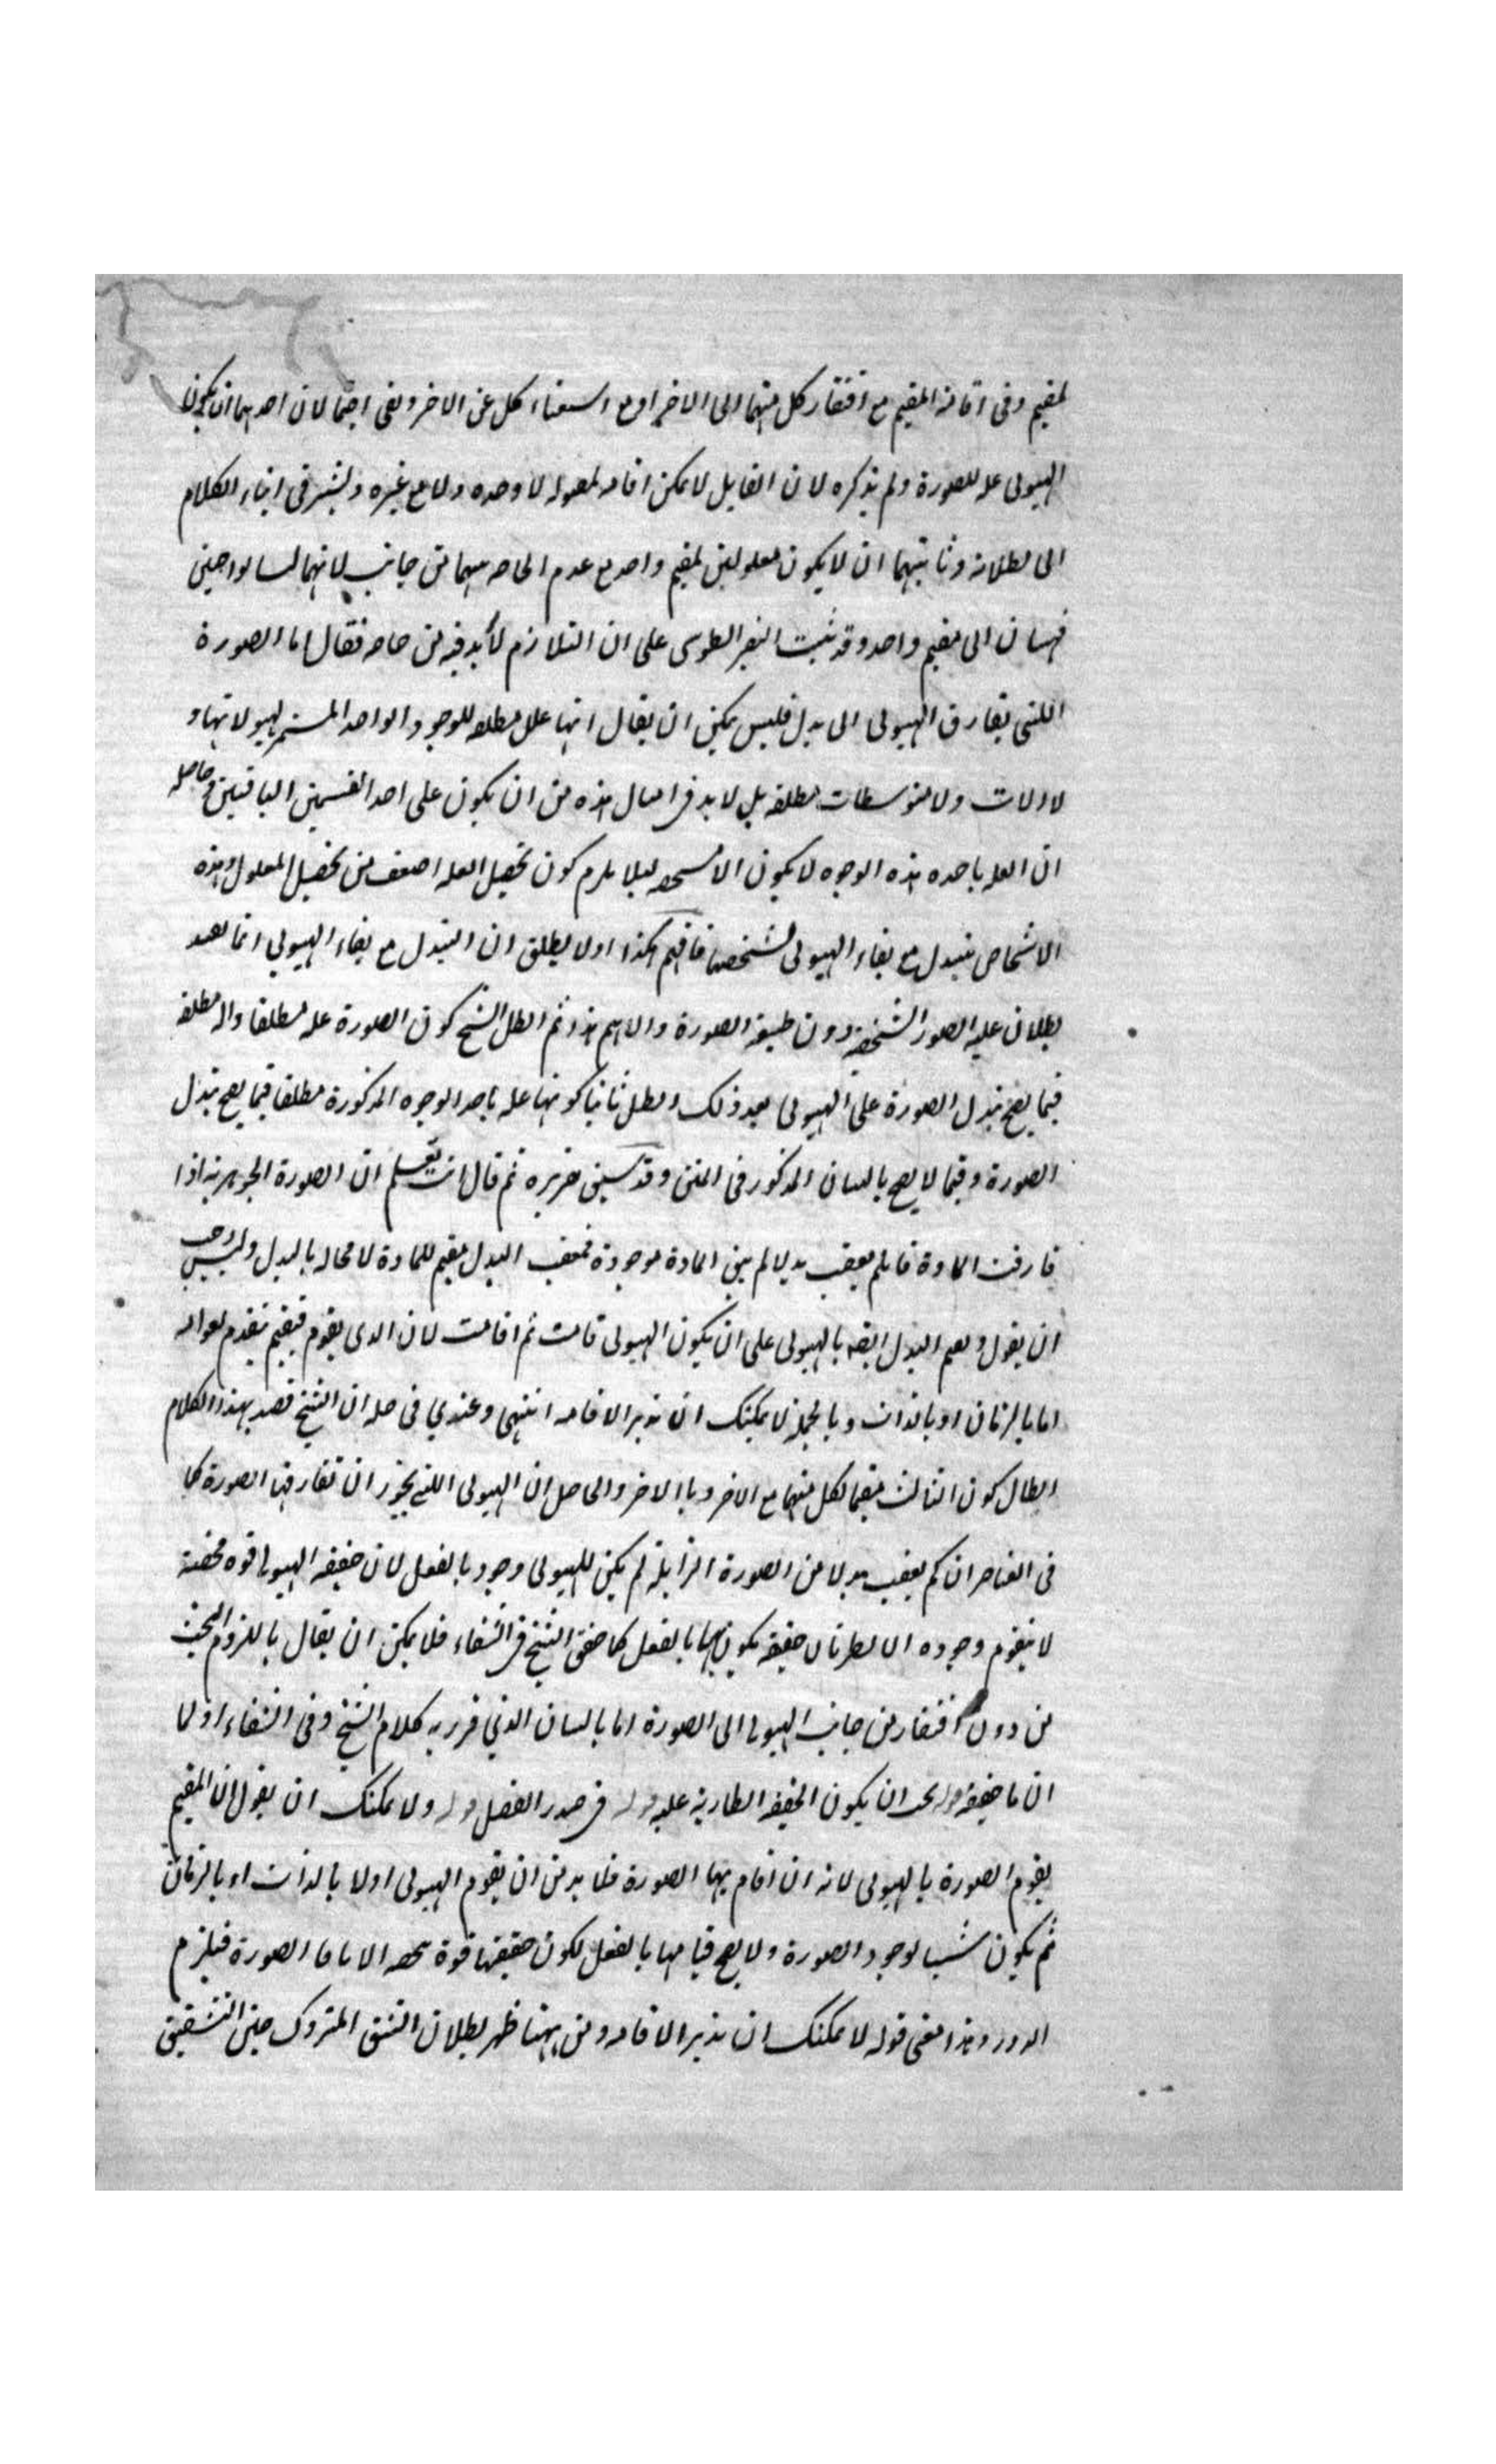 لمقيم وفى اقامة المقيم مع افتقار كل منهما الى الاخر او مع استغناء كل عن الاخر وبقى احتمالان احدهما ان يكون
الهيولى عله للصورة ولم يذكره لان القابل لا يمكن اقامه لمقبوله لا وحده ولا مع غيره وليشير فى اثناء الكلام
الى بطلانه وثانيتهما ان لا يكون معلولين لمقيم واحد مع عدم الحاجه بينهما من جانب لانهما ليسا بواجبين
فينتهيان الى مقيم واحد وقد ثبت النصير الطوسى على ان التلازم لا بد فيه من حاجه فقال اما الصورة
اللتى يفارق الهيولى الى بدل فليس يمكن ان يقال انها علل مطلقه للوجود الواحد المستمر لهيولاتها و
لا آلات ولا متوسطات مطلقه بل لا بد فى امثال هذه من ان يكون على احد القسمين الباقيين وحاصله
ان العله باحده هذه الوجوه لا يكون الا مشخصه ليلا يلزم كون تحصيل العله اضعف من تحصيل المعلول وهذه
الاشخاص يتبدل مع بقاء الهيولى بشخصها فافهم هكذا اولا يطلق ان التبدل مع بقاء الهيولى انما يفيد
بطلان عليه الصور الشخصيه دون طبيعه الصورة والاهم هذا ثم ابطل الشيخ كون الصورة عله مطلقا واله مطلقه
فيما يصح تبدل الصورة على الهيولى بعد ذلك وابطل ثانيا كونها عله باحد الوجوه المذكورة مطلقا فيما يصح تبدل
الصورة وفيما لا يصح بالبيان المذكور فى المتن وقد سبق تقريره ثم قال انت تعلم ان الصورة الجوهرية اذا
فارقت المادة فان لم يعقب بدلا لم يبق المادة موجودة فمعقب البدل مقيم للمادة لا محاله بالبدل وليس بواجب
ان يقول ويقيم البدل ايضا بالهيولى على ان يكون الهيولى قامت ثم اقامت لان الذى يقوم فيقيم يتقدم بقوامه
اما بالزمان او بالذات وبالجملة لا يمكنك ان تدير الاقامه انتهى وعندي فى حله ان الشيخ قصد بهذا الكلام
ابطال كون الثالث مقيما لكل منهما مع الاخر وبالاخر والحاصل ان الهيولى اللتى يجوز ان تفارقها الصورة كما
فى العناصر ان لم يعقب بدلا من الصورة الزايلة لم يكن للهيولى وجود بالفعل لان حقيقه الهيولى قوه محضة
لا يتقوم وجوده الا بطريان حقيقه يكون بها بالفعل كما حقق الشيخ فى الشفاء فلا يمكن ان يقال باللزوم البحت
من دون افتقار من جانب الهيولى الى الصورة اما بالبيان الذي قرر به كلام الشيخ وفى الشفاء اولا
ان ما حقيقه قوه يجب ان يكون الحقيقه الطارية عليه فى صدر الفصل ولا يمكنك ان يقول ان المقيم
يقوم الصورة بالهيولى لانه ان اقام بها الصورة فلا بد من ان يقوم الهيولى اولا بالذات او بالزمان
ثم يكون سببا لوجود الصورة ولا يصح قيامها بالفعل لكون حقيقتها قوة محضه الا باقامة الصورة فيلزم
الدور وهذا معنى قوله لا يمكنك ان تدير الاقامه ومن ههنا ظهر بطلان الشق المتروك حين التشقيق